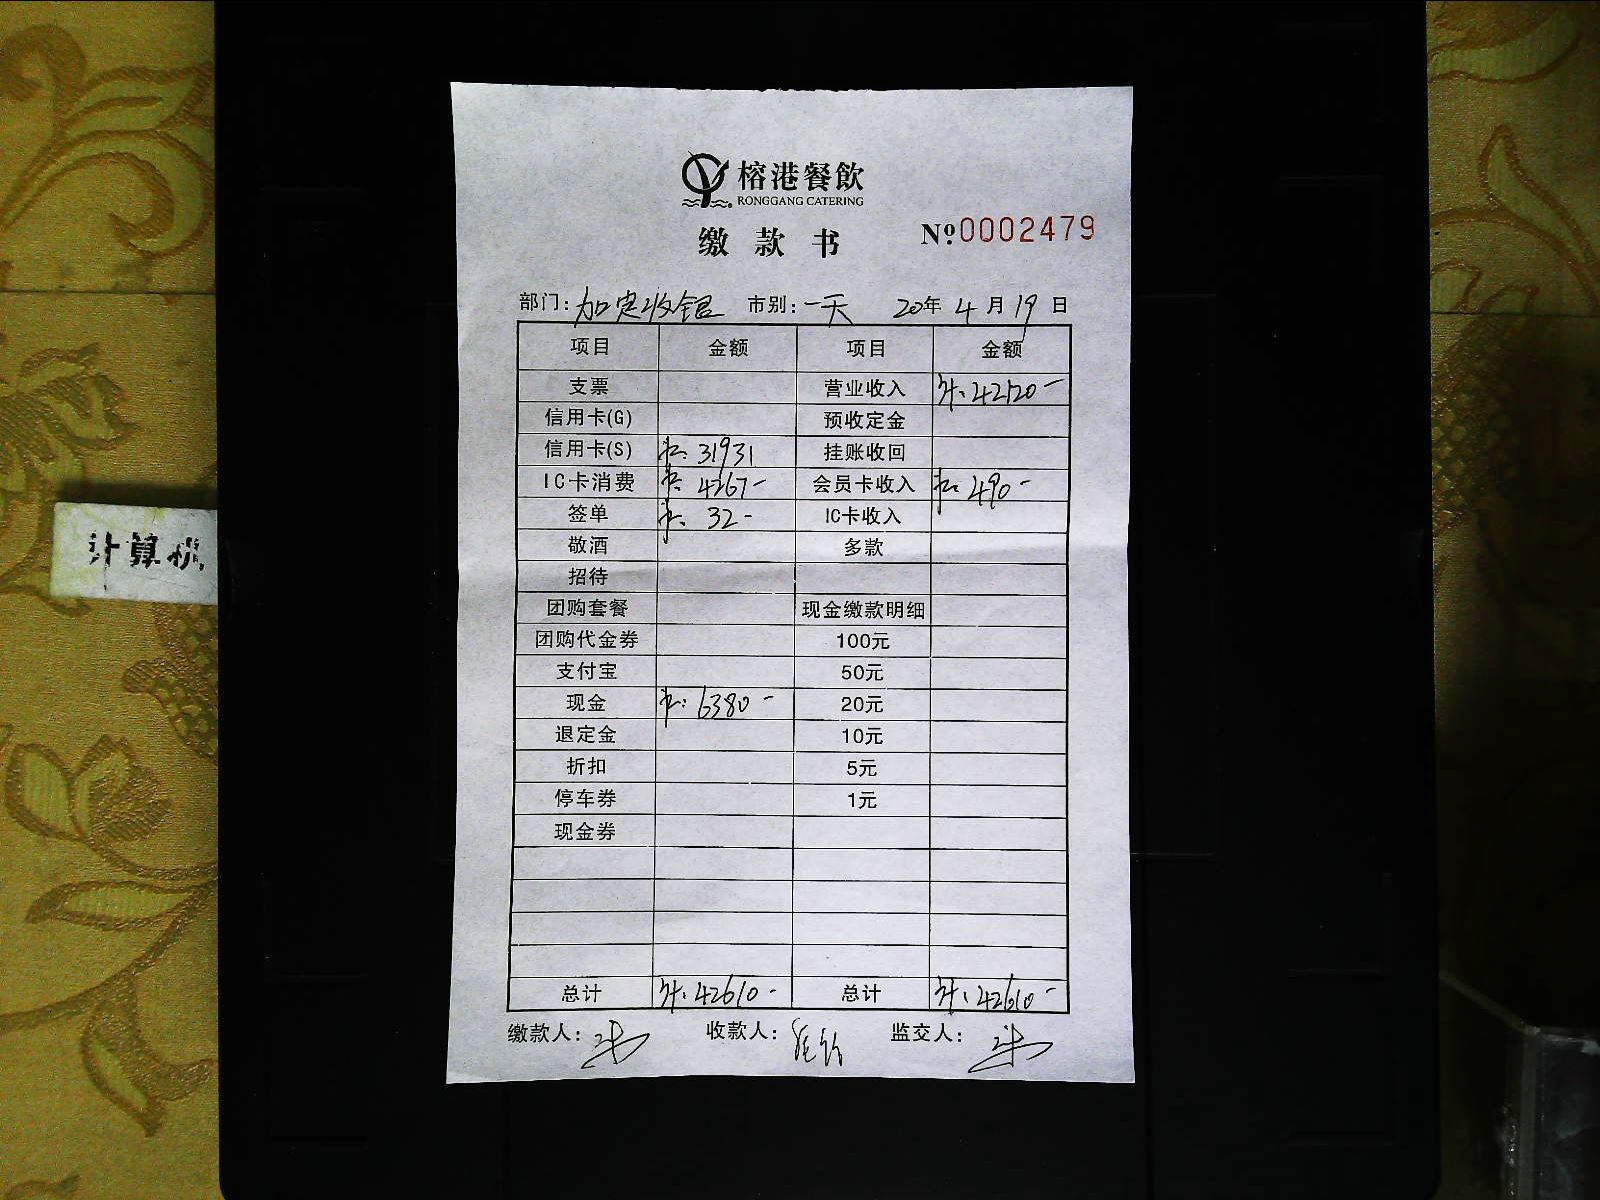 榕港餐飲
RONGGANG CATERING
缴款书 №0002479
部门: 加定收银 市别: 一天 20年 4月 19日
项目 金额 项目 金额
支票 营业收入 42120-
信用卡(G) 预收定金
信用卡(S) 31931 挂账收回
IC卡消费 4267- 会员卡收入 490-
签单 32- IC卡收入
敬酒 多款
招待
团购套餐 现金缴款明细
团购代金券 100元
支付宝 50元
现金 6380- 20元
退定金 10元
折扣 5元
停车券 1元
现金券
总计 42610- 总计 42610-
缴款人: 收款人: 监交人:
计算机